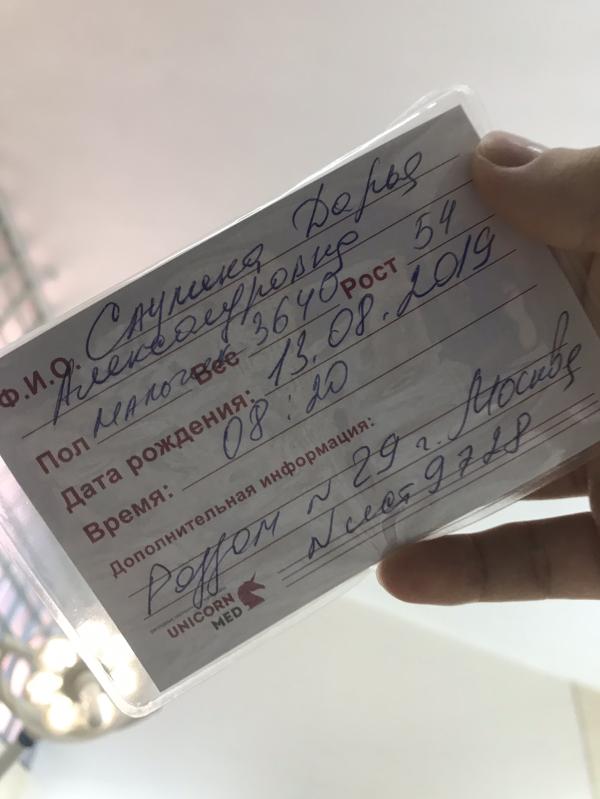 Ф.И.О. Слупина Дарья
Александровна
Пол мальчик Вес 3640 Рост 54
Дата рождения: 13.08.2019
Время: 08:20
Дополнительная информация:
Роддом N 29 г. Москва
N ист 9728
UNICORN
MED